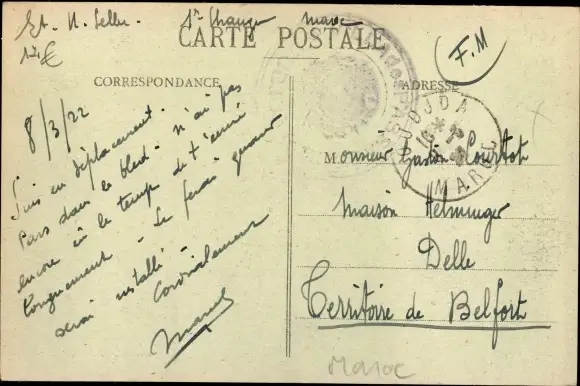 Maroc
CARTE POSTALE
F.M
CORRESPONDANCE
ADRESSE
8/3/22
Suis en déplacement.
Pars dans le bled. N'ai pas
encore eu le temps de t'écrire
longuement - Le ferai quand
serai installé -
Cordialement
Marcel
OUDJDA
MAROC
Monsieur Gaston Courtot
maison Helminger
Delle
Territoire de Belfort
Maroc